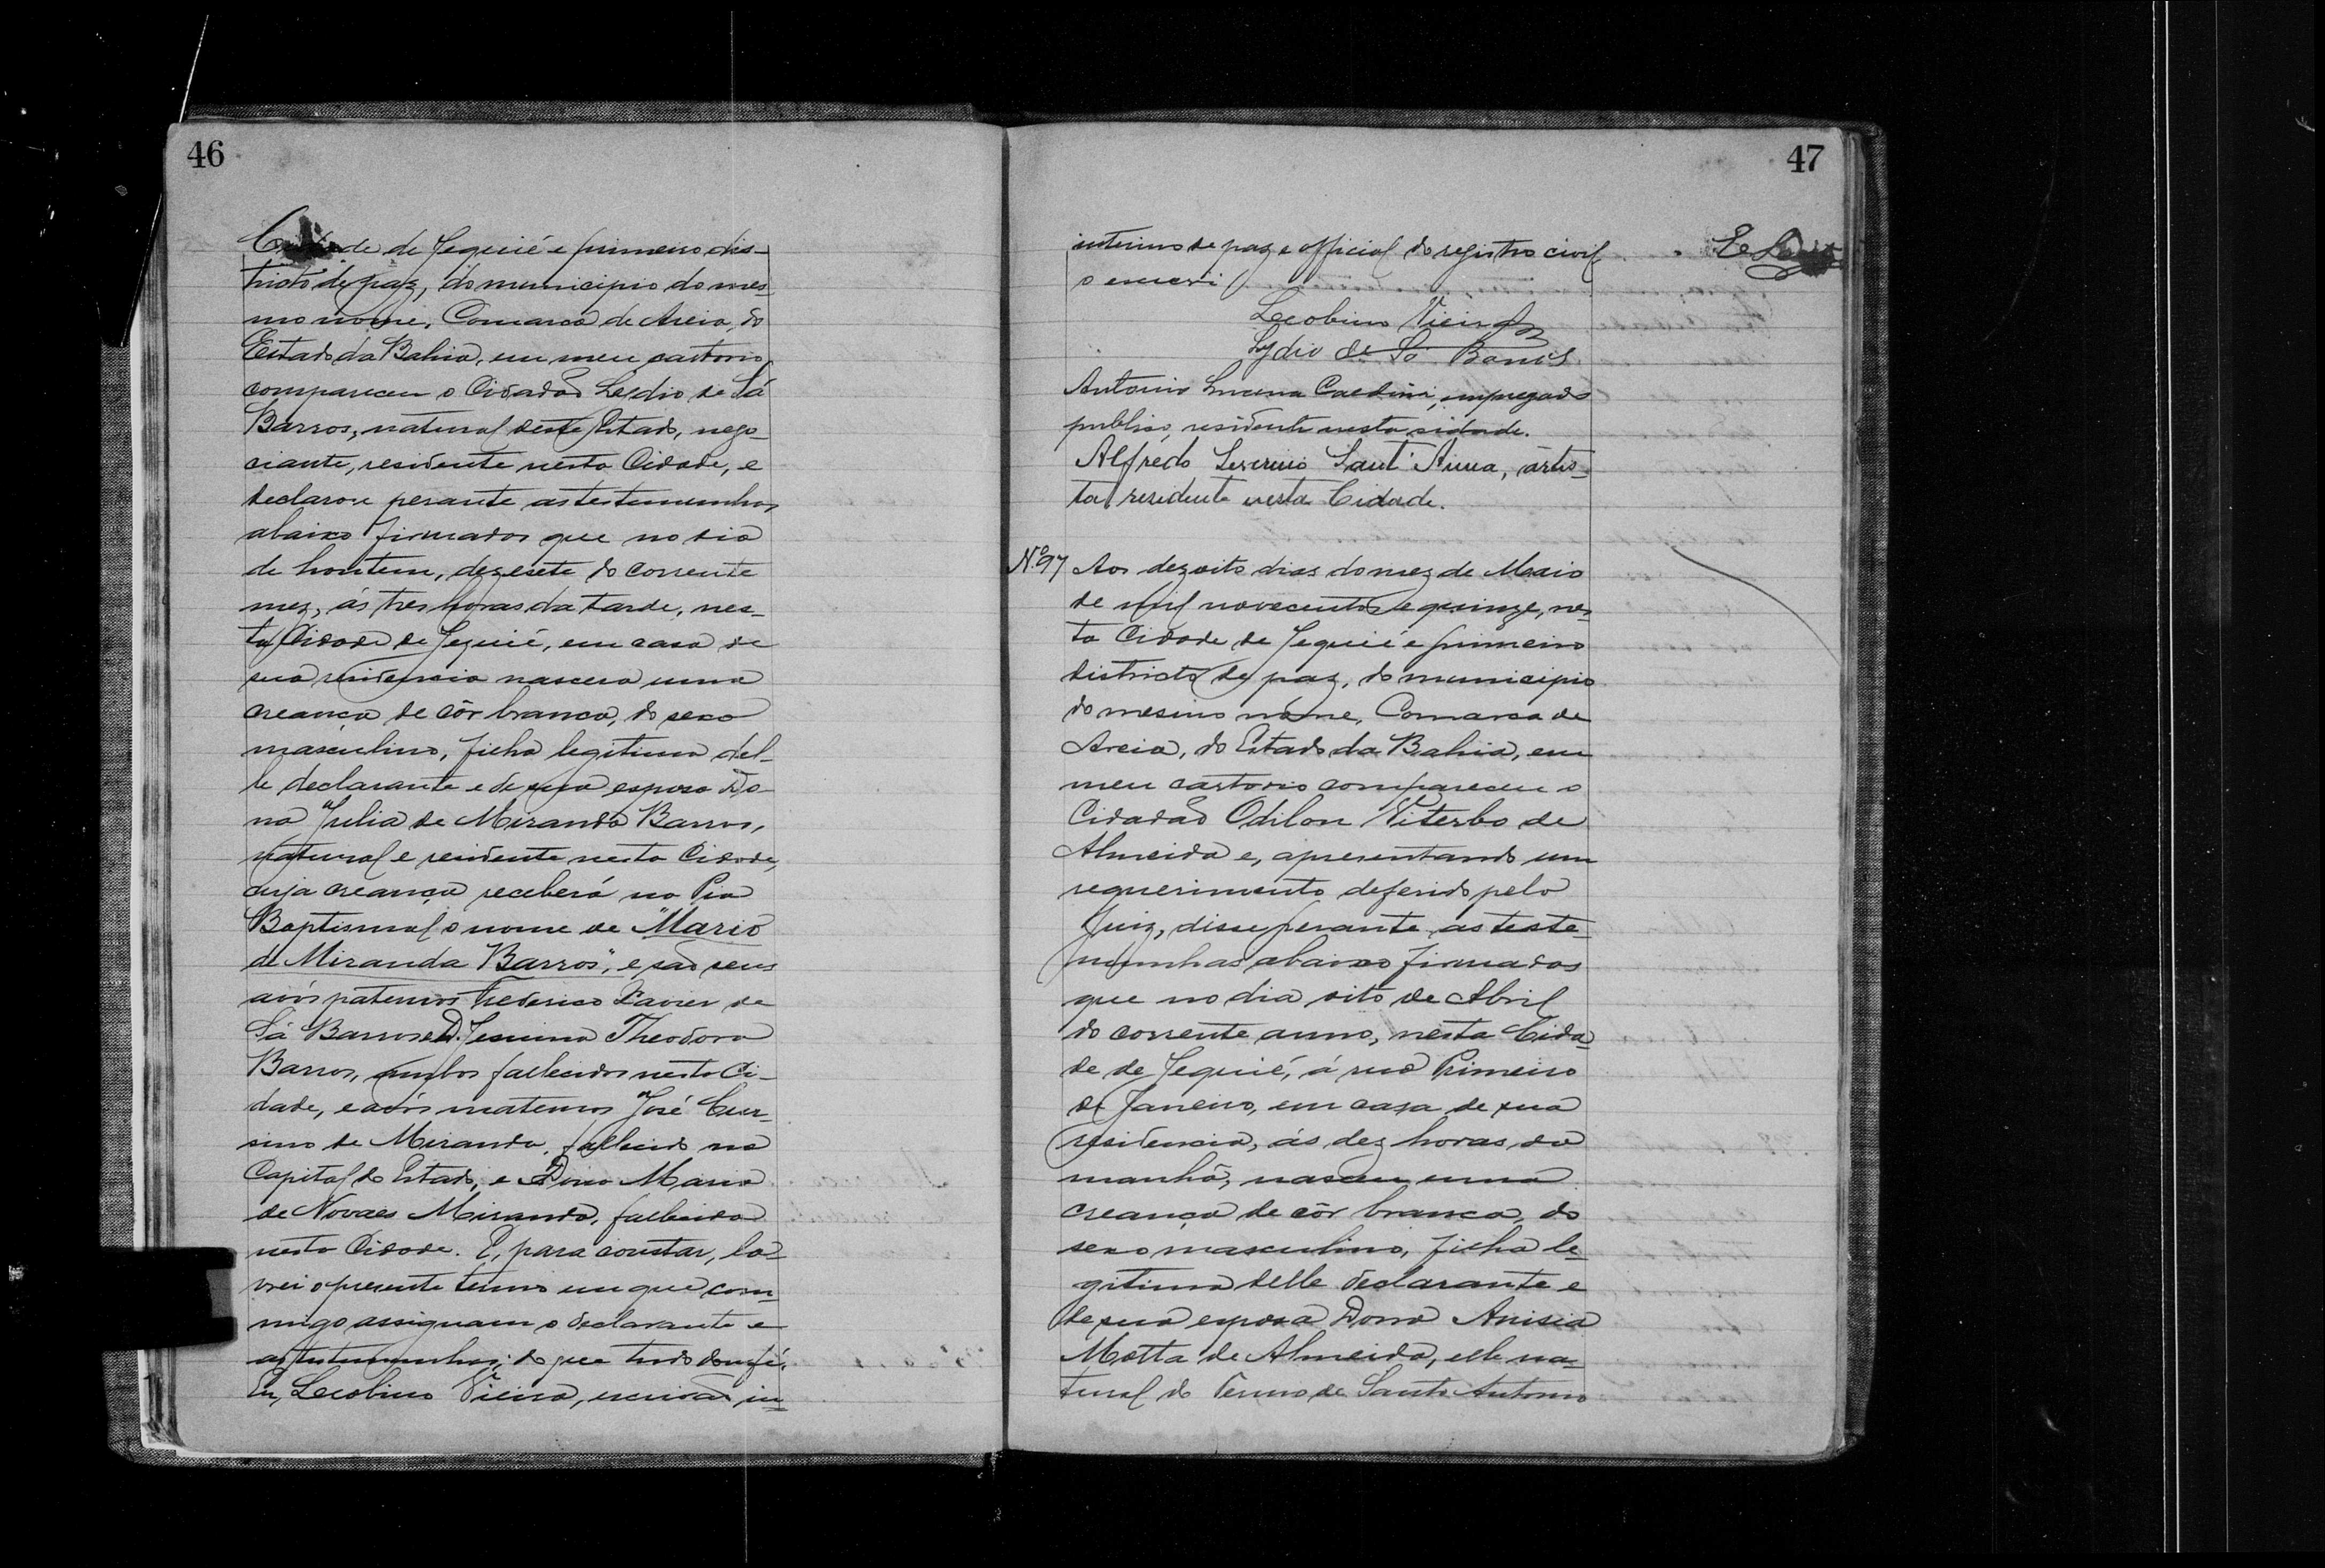 46
Cidade de Jequié e primeiro dis-
tricto de paz, do municipio do mes-
mo nome, Comarca de Areia, do
Estado da Bahia, em meu cartorio,
compareceu o Cidadão Lydio de Sá
Barros, natural deste Estado, nego-
ciante, residente nesta Cidade, e
declarou perante as testemunhas
abaixo firmadas que no dia
de hontem, dezesete do corrente
mez, ás tres horas da tarde, nes-
ta Cidade de Jequié, em casa de
sua residencia nascera uma
creança de côr branca, do sexo
masculino, filha legitima del-
le declarante e de sua esposa Do-
na Julia de Miranda Barros,
natural e residente nesta Cidade,
cuja creança receberá na Pia
Baptismal o nome de "Mario
de Miranda Barros", e são seus
avós paternos Frederico Xavier de
Sá Barros e D. Jesuina Theodora
Barros, ambos fallecidos nesta Ci-
dade, e avós maternos José Cur-
sino de Miranda, fallecido na
Capital do Estado, e Dona Maria
de Novaes Miranda, fallecida
nesta Cidade. E, para constar, la-
vrei o presente termo em que com-
migo assignam o declarante e
as testemunhas; do que tudo dou fé.
Eu, Leobino Vieira, escrivão in-
47
interino de paz e official do registro civil
o escrevi
Leobino Vieira
Lydio de Sá Barros
Antonio Lucena, empregado
publico, residente nesta cidade.
Alfredo Severino Sant'Anna, artis-
ta residente nesta Cidade.
Nº 97 Aos dezoito dias do mez de Maio
de mil novecentos e quinze, nes-
ta Cidade de Jequié e primeiro
districto de paz, do municipio
do mesmo nome, Comarca de
Areia, do Estado da Bahia, em
meu cartorio compareceu o
Cidadão Odilon Viterbo de
Almeida e, apresentando um
requerimento deferido pelo
Juiz, disse perante as teste-
munhas abaixo firmadas
que no dia oito de Abril
do corrente anno, nesta Cida-
de de Jequié, á rua Primeiro
de Janeiro, em casa de sua
residencia, ás dez horas da
manhã, nasceu uma
creança de côr branca, do
sexo masculino, filha le-
gitima delle declarante e
de sua esposa Dona Anisia
Motta de Almeida, elle na-
tural do Termo de Santo Antonio